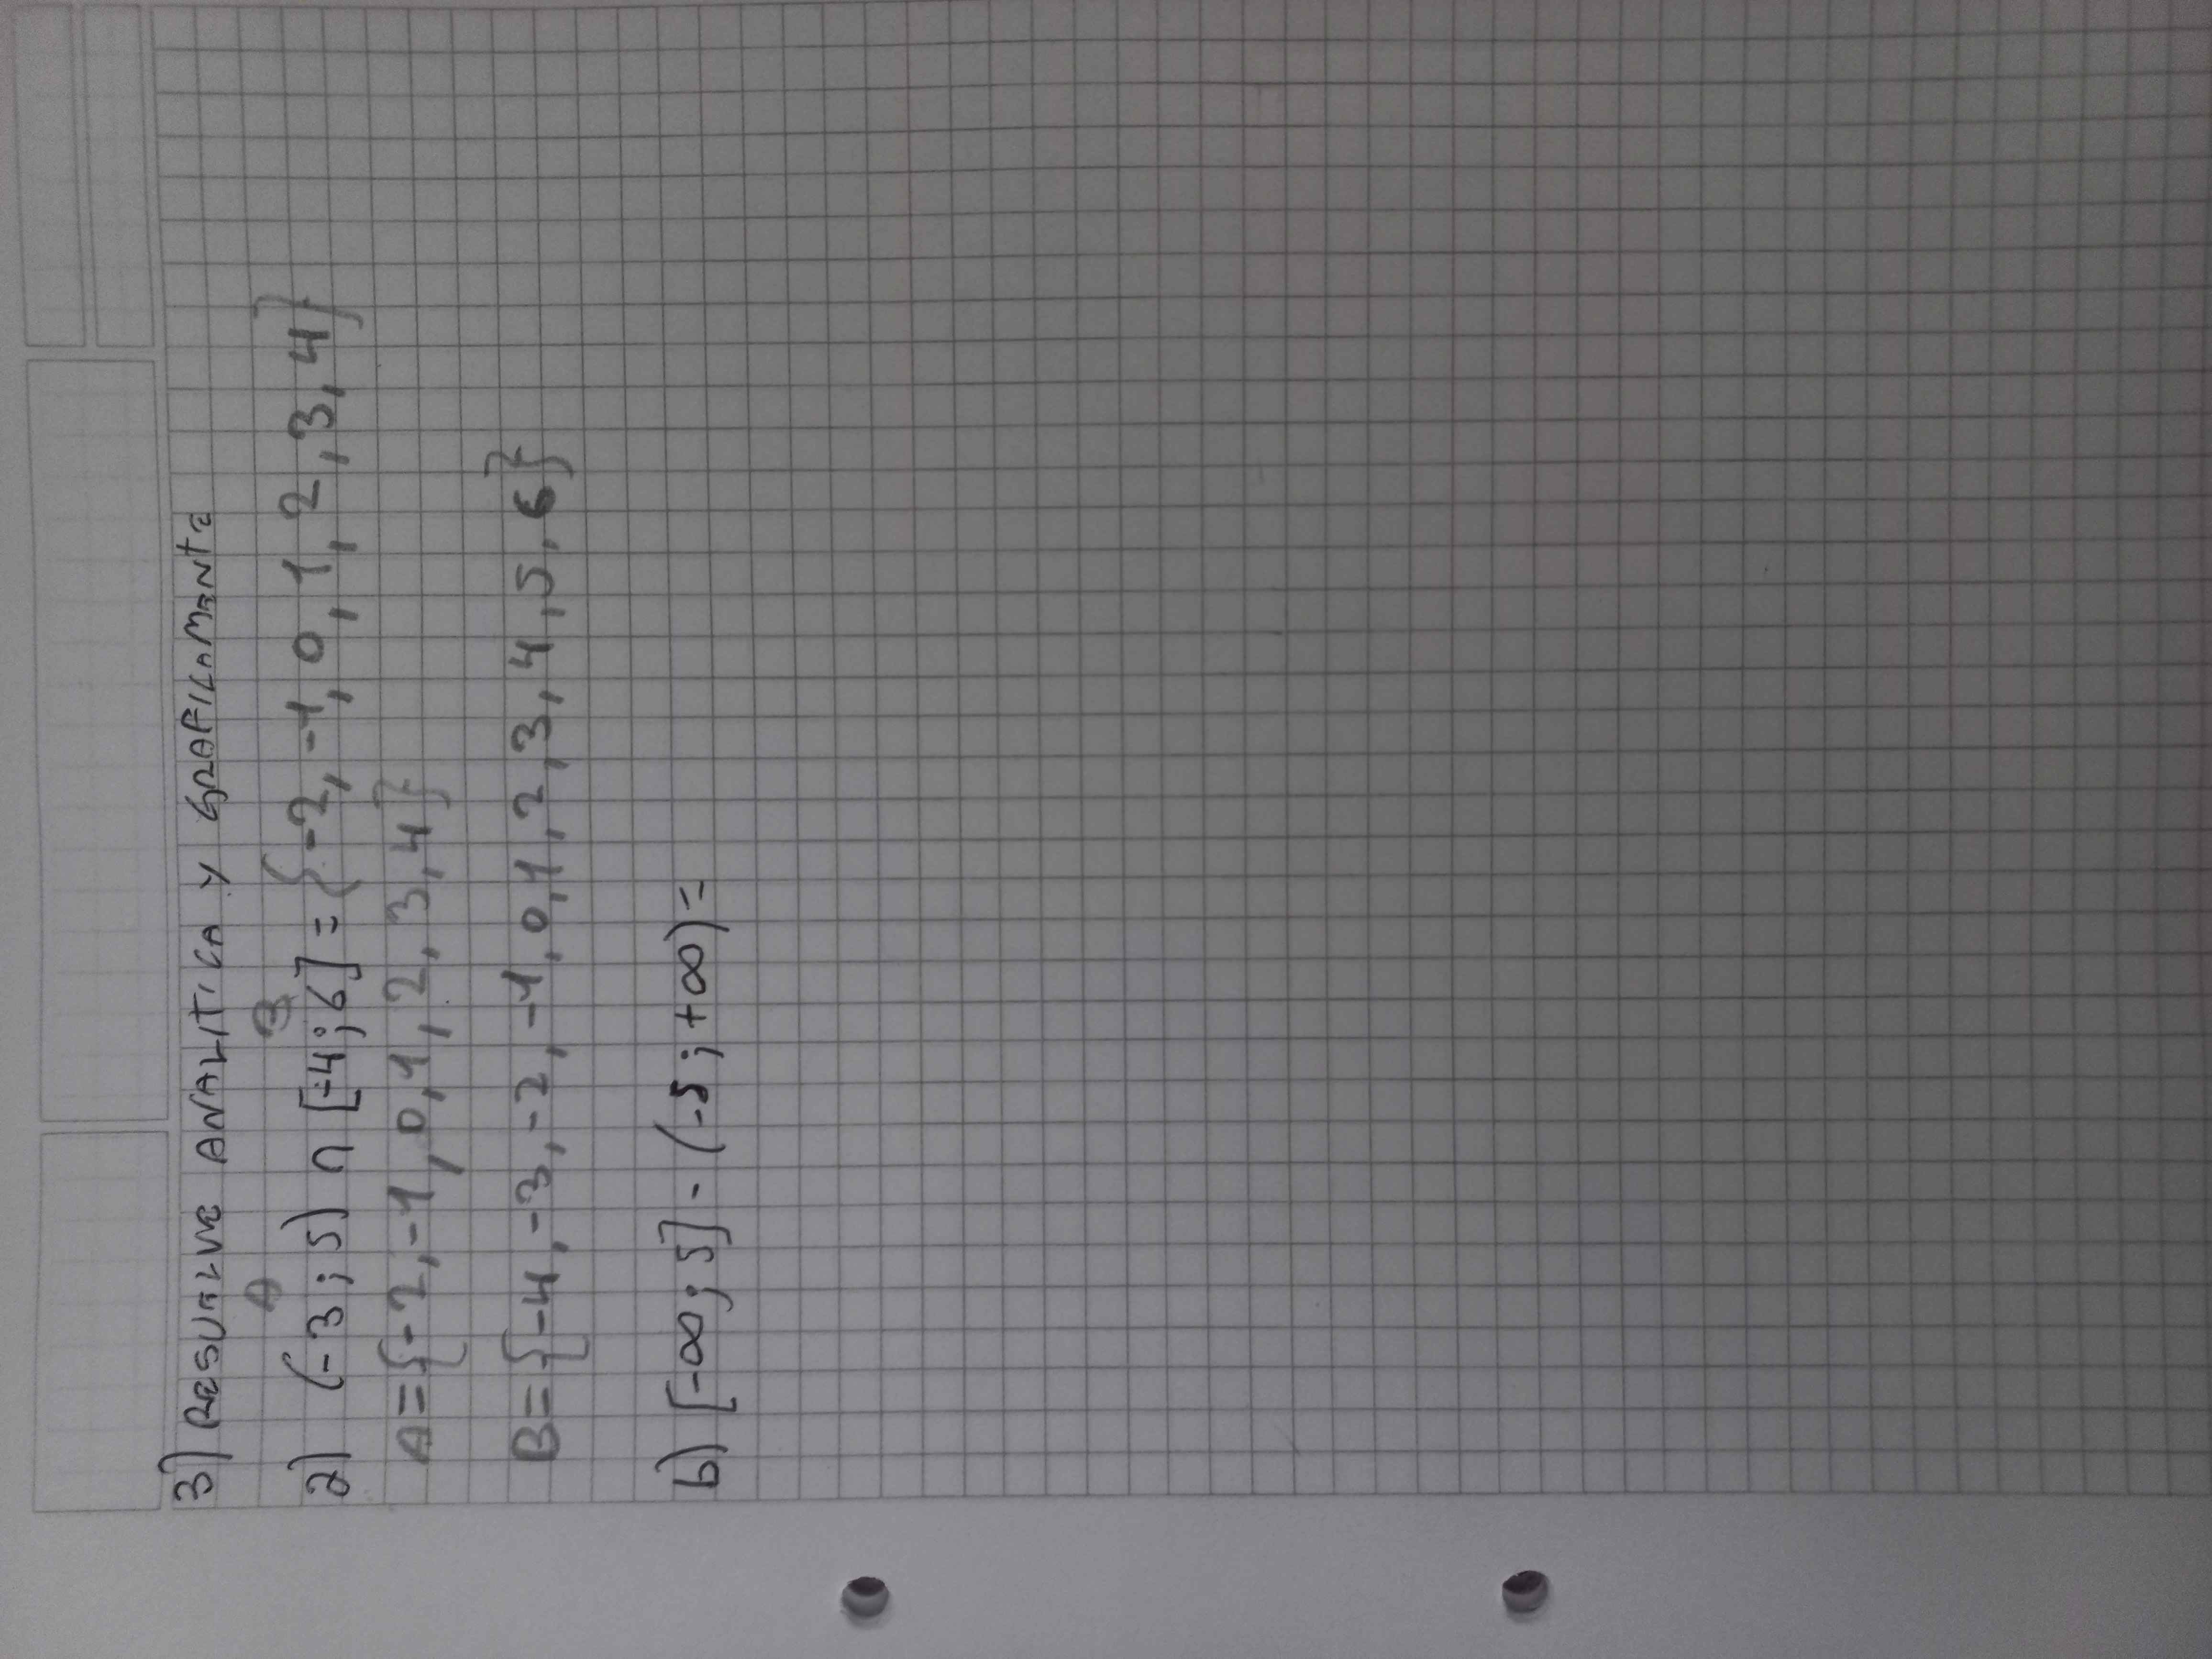 3) RESUELVE ANALITICA Y GRAFICAMENTE
A B
a) (-3;5) ∩ [-4;6] = {-2,-1,0,1,2,3,4}
A={-2,-1,0,1,2,3,4}
B={-4,-3,-2,-1,0,1,2,3,4,5,6}
b) [-∞;5] - (-5;+∞)=